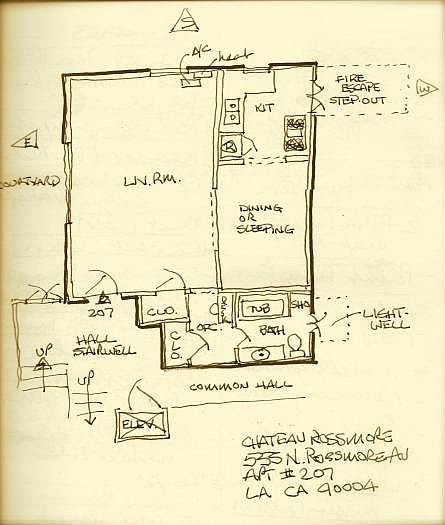 S
A/C
heat
FIRE
ESCAPE
STEP-OUT
W
KIT
R
E
COURTYARD
LIV. RM.
DINING
OR
SLEEPING
207
CLO.
DESK
TUB
SHO
BATH
LIGHT-
WELL
HALL
STAIRWELL
CLO.
UP
UP
COMMON HALL
ELEV.
CHATEAU ROSSMORE
535 N. ROSSMORE AV
APT # 207
LA CA 90004